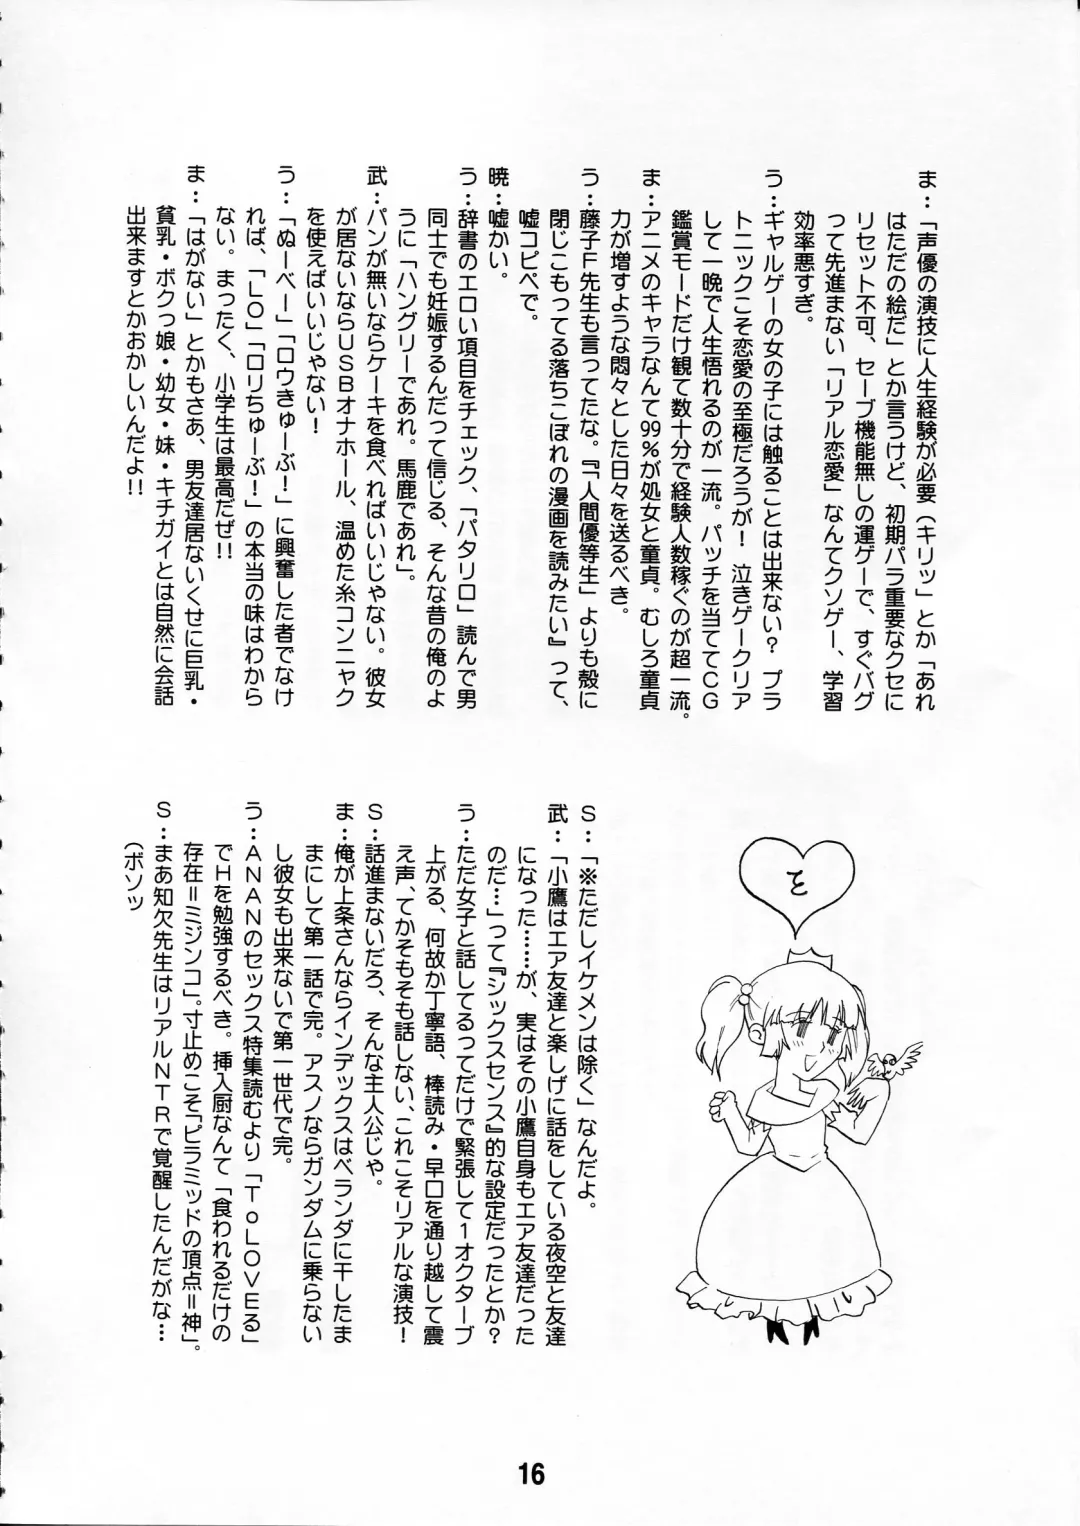 ま：「声優の演技に人生経験が必要（キリッ」とか「あれ
はただの絵だ」とか言うけど、初期パラ重要なクセに
リセット不可、セーブ機能無しの運ゲーで、すぐバグ
って先進まない「リアル恋愛」なんてクソゲー、学習
効率悪すぎ。
う：ギャルゲーの女の子には触ることは出来ない？プラ
トニックこそ恋愛の至極だろうが！泣きゲークリア
して一晩で人生悟れるのが一流。パッチを当ててCG
鑑賞モードだけ観て数十分で経験人数稼ぐのが超一流。
ま：アニメのキャラなんて99%が処女と童貞。むしろ童貞
力が増すような悶々とした日々を送るべき。
う：藤子F先生も言ってたな。『「人間優等生」よりも殻に
閉じこもってる落ちこぼれの漫画を読みたい』って、
嘘コピペで。
暁：嘘かい。
う：辞書のエロい項目をチェック、「パタリロ」読んで男
同士でも妊娠するんだって信じる、そんな昔の俺のよ
うに「ハングリーであれ。馬鹿であれ」。
武：パンが無いならケーキを食べればいいじゃない。彼女
が居ないならUSBオナホール、温めた糸コンニャク
を使えばいいじゃない！
う：「ぬ～べ～」「ロウきゅーぶ！」に興奮した者でなけ
れば、「LO」「ロリちゅーぶ！」の本当の味はわから
ない。まったく、小学生は最高だぜ!!
ま：「はがない」とかもさあ、男友達居ないくせに巨乳・
貧乳・ボクっ娘・幼女・妹・キチガイとは自然に会話
出来ますとかおかしいんだよ!!
S：「※ただしイケメンは除く」なんだよ。
武：「小鷹はエア友達と楽しげに話をしている夜空と友達
になった……が、実はその小鷹自身もエア友達だった
のだ…」って『シックスセンス』的な設定だったとか？
う：ただ女子と話してるってだけで緊張して1オクターブ
上がる、何故か丁寧語、棒読み・早口を通り越して震
え声、てかそもそも話しない、これこそリアルな演技！
S：話進まないだろ、そんな主人公じゃ。
ま：俺が上条さんならインデックスはベランダに干したま
まにして第一話で完。アスノならガンダムに乗らない
し彼女も出来ないで第一世代で完。
う：ANANのセックス特集読むより「ToLOVEる」
でHを勉強するべき。挿入厨なんて「食われるだけの
存在＝ミジンコ」。寸止めこそ『ピラミッドの頂点＝神』。
S：まあ知欠先生はリアルNTRで覚醒したんだがな…
（ボソッ
と
16